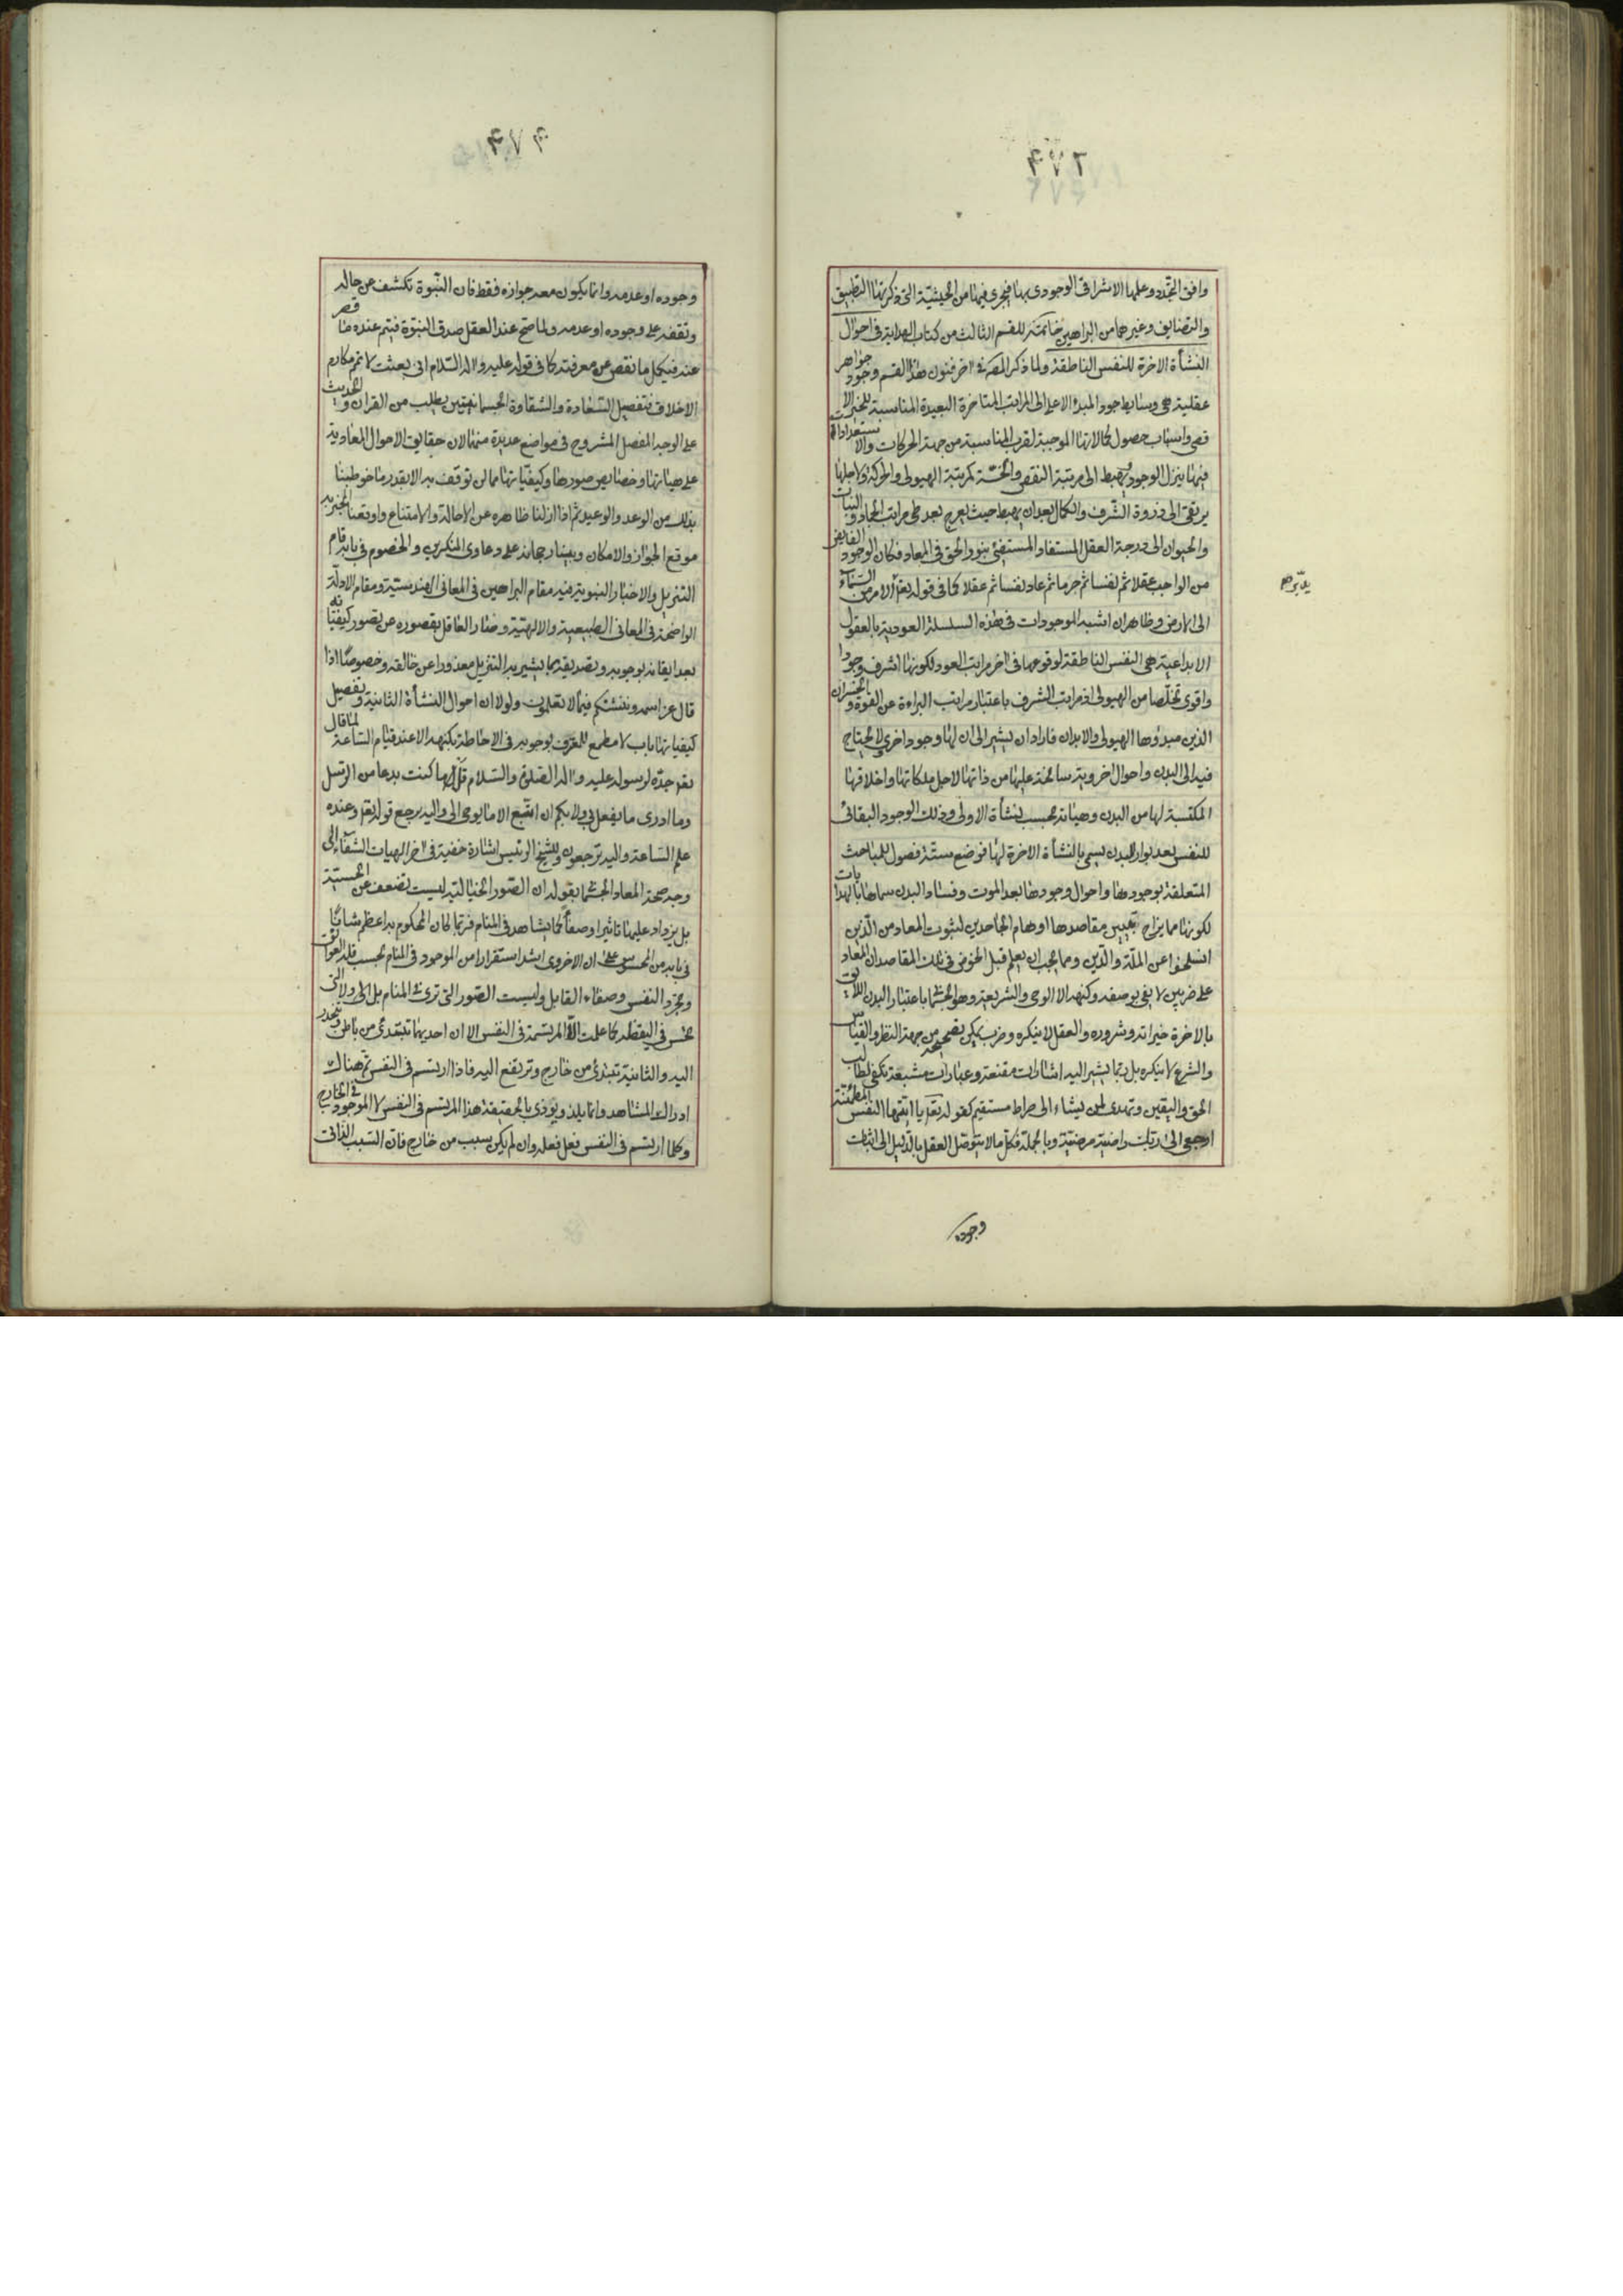 وافق التجدد وعلمها الاشراقى الوجودى بها فيجرى فيها من الحيثية التى ذكرتها التطبيق
والتضايف وغيرهما من البراهين خاتمة للقسم الثالث من كتاب الهداية فى احوال
النشأة الاخرة للنفس الناطقة ولما ذكر المصه فى اخر فنون هذا القسم وجود جواهر
عقلية هى وسايط جود المبدء الاعلى الى المراتب المتاخرة البعيدة المناسبة للخيرالا
قصى واسباب حصول كمالاتها الموجبة لقرب المناسبة من جهة الحركات والاستعدادات
فيها ينزل الوجود ويهبط الى مرتبة النقص والخسة كمرتبة الهيولى والحركة ولاجلها
يرتقى الى ذروة الشرف والكمال بعد ان يهبط حيث يعرج بعد طى مراتب الجماد والنبات
والحيوان الى درجة العقل المستفاد المستفئ بنور الحق فى المعاد فكان الوجود الفايض
من الواجب عقلا ثم نفسا ثم جرما ثم عاد نفسا ثم عقلا كما فى قوله تعم الامر من السماء
الى الارض وظاهر ان اشبه الموجودات فى هذه السلسلة العودية بالعقول
يدبر
الابداعية هى النفس الناطقة لوقوعها فى اخر مراتب العود لكونها اشرف وجودا
واقوى تخلصا من الهيولى اذ مراتب الشرف باعتبار مراتب البراءة عن القوة والخسران
الذين مبدؤها الهيولى والابدان فاراد ان يشير الى ان لها وجودا اخرى ولا يحتاج
فيه الى البدن واحوال اخروية سانحة عليها من ذاتها لاجل ملكاتها واخلاقها
المكتسبة لها من البدن وهيئاته بحسب نشأة الاولى وذلك الوجود البقائى
للنفس بعد بوار البدن يسمى بالنشأة الاخرة لها فوضع ستة فصول للمباحث
المتعلقة بوجودها واحوال وجودها بعد الموت وفساد البدن سماها بالهدايات
لكونها مما يزاح بتبيين مقاصدها اوهام الجاحدين لثبوت المعاد من الذين
انسلخوا عن الملة والدين ومما يجب ان يعلم قبل الخوض فى تلك المقاصد ان المعاد
على ضربين لا يفى بوصفه وكنهه الا الوحى والشريعة وهو الجسمانى باعتبار البدن اللايق
بالاخرة خيراته وشروره والعقل لا ينكره وضرب يمكن تصحيحه من جهة النظر والقياس
والشرع لا ينكره بل ربما يشير اليه اشارات مقنعة وعبارات مشبعة تكفى لطالب
الحق واليقين وتهدى لمن يشاء الى صراط مستقيم كقوله تعم يا ايتها النفس المطمئنة
ارجعى الى ربك راضية مرضية وبالجملة فكل ما لا يتوصل العقل بالدليل الى اثبات
وجوده
وجوده او عدمه وانما يكون معه جوازه فقط فان النبوة تكشف عن حاله
وتقفه على وجوده او عدمه ولما صح عند العقل صدق النبوة فيتم عنده ما قصر
عنه فيكمل ما نقص عن معرفته كما فى قوله عليه واله السلام انى بعثت لاتمم مكارم
الاخلاق فتفصيل السعادة والشقاوة الجسمانيتين يطلب من القران والحديث
على الوجه المفصل المشروح فى مواضع عديدة منهما لان حقايق الاحوال المعادية
على هيئاتها وخصايص صورها وكيفياتها مما لن توقف به الا بقدر ما خوطبنا
بذلك من الوعد والوعيد ثم اذا ازلنا ظاهره عن الاحالة والامتناع واوقعنا الخبر به
موقع الجواز والامكان وبينا رجحانه على دعاوى المنكرين والخصوم فى بابه قام
التنزيل والاخبار النبوية فيه مقام البراهين فى المعانى الهندسية ومقام الادلة
الواضحة فى المعانى الطبيعية والالهية وصار العاقل بقصوره عن تصور كيفياته
بعد ايقانه بوجوبه وتصديقه بما يشير به التنزيل معذورا عن خالقه وخصوصا اذا
قال عز اسمه وننشئكم فيما لا تعلمون ولولا ان احوال النشأة الثانية وتفصيل
كيفياتها باب لا مطمع للمعترف بوجوبه فى الاحاطة بكنهه الا عند قيام الساعة لما قال
تعم جده لرسوله عليه واله الصلوة والسلام قل ما كنت بدعا من الرسل
وما ادرى ما يفعل بى ولا بكم ان اتبع الا ما يوحى الى واليه يرجع قوله تعم وعنده
علم الساعة واليه ترجعون وللشيخ الرئيس اشارة خفية فى اخر الهيات الشفاء الى
وجه صحة المعاد الجسمانى بقوله ان الصور الخيالية ليست تضعف عن الحسية
بل يزداد عليها تاثيرا وصفاً كما يشاهد فى المنام فربما كان المحكوم به اعظم شانا
فى بابه من المحسوس على ان الاخروى اشد استقرارا من الموجود فى المنام بحسب قلة العوايق
وتجرد النفس وصفاء القابل وليست الصور التى ترى فى المنام بل الى ولا التى
تحس فى اليقظة كما علمت الا المرتسمة فى النفس الا ان احديهما تبتدئ من باطن وتنحدر
اليه والثانية تبتدئ من خارج وترتفع اليه فاذا ارتسم فى النفس ثم هناك
ادراك المشاهد وانما يلذ ويؤذى بالحقيقة هذا المرتسم فى النفس لا الموجود فى الخارج
وكلما ارتسم فى النفس فعل فعله وان لم يكن بسبب من خارج فان السبب الذاتى